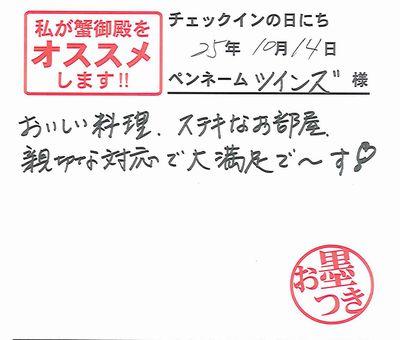 私が蟹御殿を
オススメ
します!!
チェックインの日にち
25年 10月 14日
ペンネーム ツインズ 様
おいしい料理、ステキなお部屋、
親切な対応で大満足で〜す♡
お墨つき